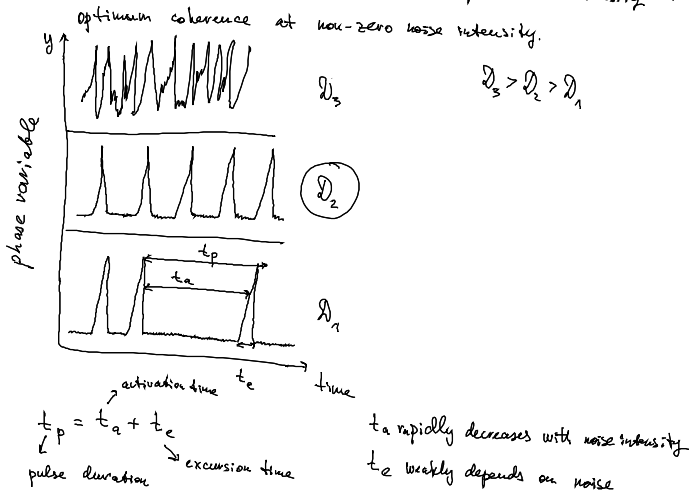 optimum coherence at non-zero noise intensity.
y
phase variable
D₃
D₃ > D₂ > D₁
D₂
t_p
t_a
D₁
t_e
time
activation time
t_p = t_a + t_e
excursion time
pulse duration
t_a rapidly decreases with noise intensity
t_e weakly depends on noise